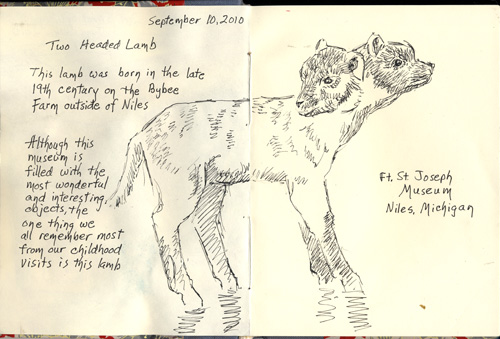 September 10, 2010
Two Headed Lamb
This lamb was born in the late
19th century on the Bybee
Farm outside of Niles
Although this
museum is
filled with the
most wonderful
and interesting
objects, the
one thing we
all remember most
from our childhood
visits is this lamb
Ft. St Joseph
Museum
Niles, Michigan